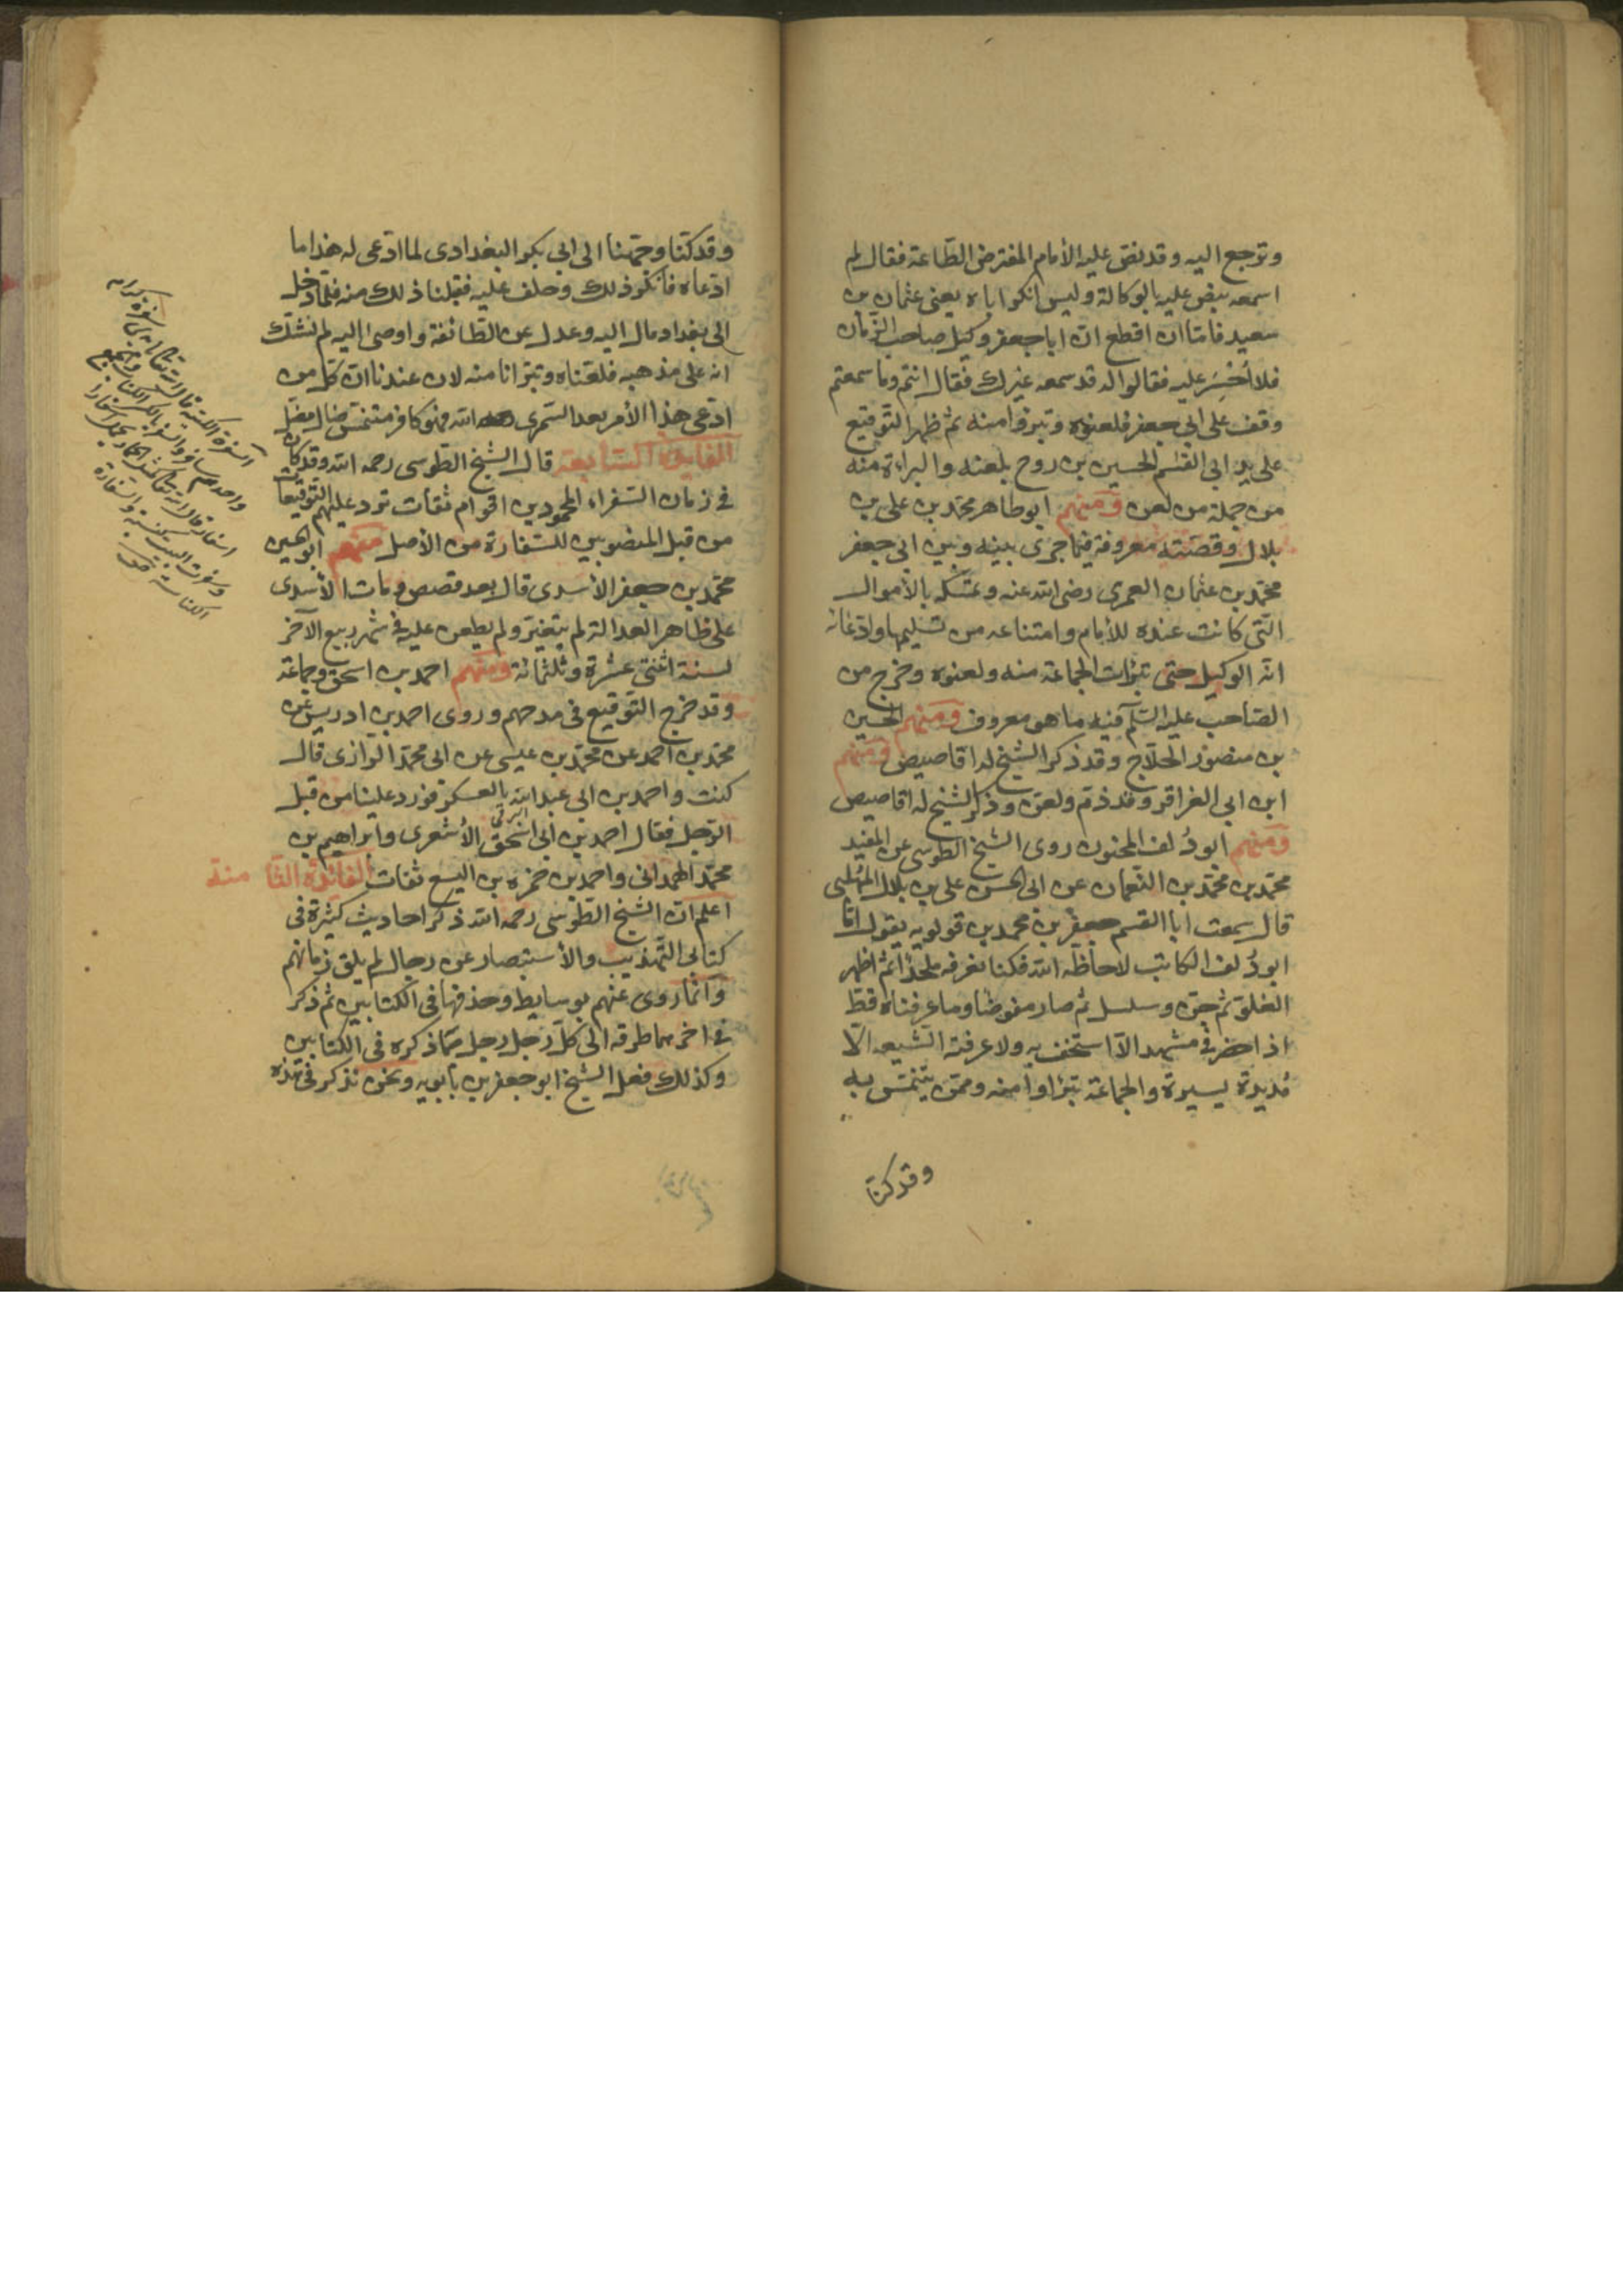 وترجع اليه وقد نص عليه الأمام المفترض الطّاعة فقال لم
اسمعه ينص عليه بالوكالة وليس انكر اباه يعني عثمان بن
سعيد فامّا ان اقطع انّ ابا جعفر وكيل صاحب الزّمان
فلا أجْسِر عليه فقالوا له قد سمعه غيرك فقال انتم وما سمعتم
وقف على ابي جعفر فلعنوه وتبرؤا منه ثم ظهر التّوقيع
على يد ابي القسم الحسين بن روح بلعنه والبراءة منه
من جملة من لعن ومنهم ابو طاهر محمّد بن على بن
بلال وقصّته معروفة فيما جرى بينه وبين ابى جعفر
محمّد بن عثمان العمرى رضى الله عنه وتمسّكه بالأموال
الّتى كانت عنده للأمام وامتناعه من تسليمها وادّعائه
انّه الوكيل حتى تبرّأت الجماعة منه ولعنوه وخرج من
الصّاحب عليه السّلم فيه ما هو معروف ومنهم الحسين
بن منصور الحلّاج وقد ذكر الشيخ له اقاصيص ومنهم
ابن ابي العزاقر وقد ذمّ ولعن وذكر الشيخ له اقاصيص
ومنهم ابو دُلف المجنون روى الشيخ الطوسى عن المفيد
محمّد بن محمّد بن النّعمان عن ابى الحسن على بن بلال المهلّبى
قال سمعت ابا القسم جعفر بن محمد بن قولويه يقول امّا
ابو دُلف الكاتب لا حاطه الله فكنّا نعرفه ملحدًا ثمّ اظهر
الغلوّ ثم جنّ وسلسل ثم صار مفوضًا وما عرفناه قطّ
اذا حضر في مشهد الّا استخف به ولا عرفته الشّيعه الّا
مُديدة يسيرة والجماعة تتبرّاوا منه وممّن يتنمّس به
وقد كنّا
وقد كنّا وجّهنا الى ابى بكر البغدادى لما ادّعى له هذا ما
ادّعاه فانكر ذلك وحلف عليه فقبلنا ذلك منه فلمّا دخل
الى بغداد مال اليه وعدل عن الطّائفة واوصى اليه لم نشكّ
انه على مذهبه فلعنّاه وتبرّانا منه لان عندنا انّ كلّ من
ادّعى هذا الأمر بعد السّمرى رحمه الله فهو كافر متنمّس ضال مضلّ
الفايدة السّابعة قال الشيخ الطّوسى رحمه الله وقد كان
في زمان السّفراء المحمودين اقوام ثقات ترد عليهم التّوقيعات
من قبل المنصوبين للسّفارة من الأصل منهم ابو الحسين
محمّد بن جعفر الأسدى قال بعد قصص ومات الأسدى
على ظاهر العدالة لم يتغيّر ولم يطعن عليه في شهر ربيع الآخر
لسنة اثنتى عشرة وثلثمائة ومنهم احمد بن اسحق وجماعة
وقد خرج التّوقيع فى مدحهم وروى احمد بن ادريس عن
محمّد بن احمد عن محمّد بن عيسى عن ابى محمّد الرّازى قال
كنت واحمد بن ابى عبد الله بالعسكر فورد علينا من قبل
البرقى
الرّجل فقال احمد بن ابى اسحق الأشعرى وابراهيم بن
محمّد الهمدانى واحمد بن حمزه بن اليسع ثقات الفائدة الثّا منة
اعلم انّ الشيخ الطّوسى رحمه الله ذكر احاديث كثيرة فى
كتابى التّهذيب والأستبصار عن رجال لم يلق زمانهم
وانّما روى عنهم بوسايط وحذفها فى الكتابين ثم ذكر
فى اخرهما طرقه الى كلّ رجل رجل ممّا ذكره فى الكتابين
وكذلك فعل الشيخ ابو جعفر بن بابويه ونحن نذكر فى هذه
السّفرة الكتبة قال الله تعالى بايدي سفرة كرام